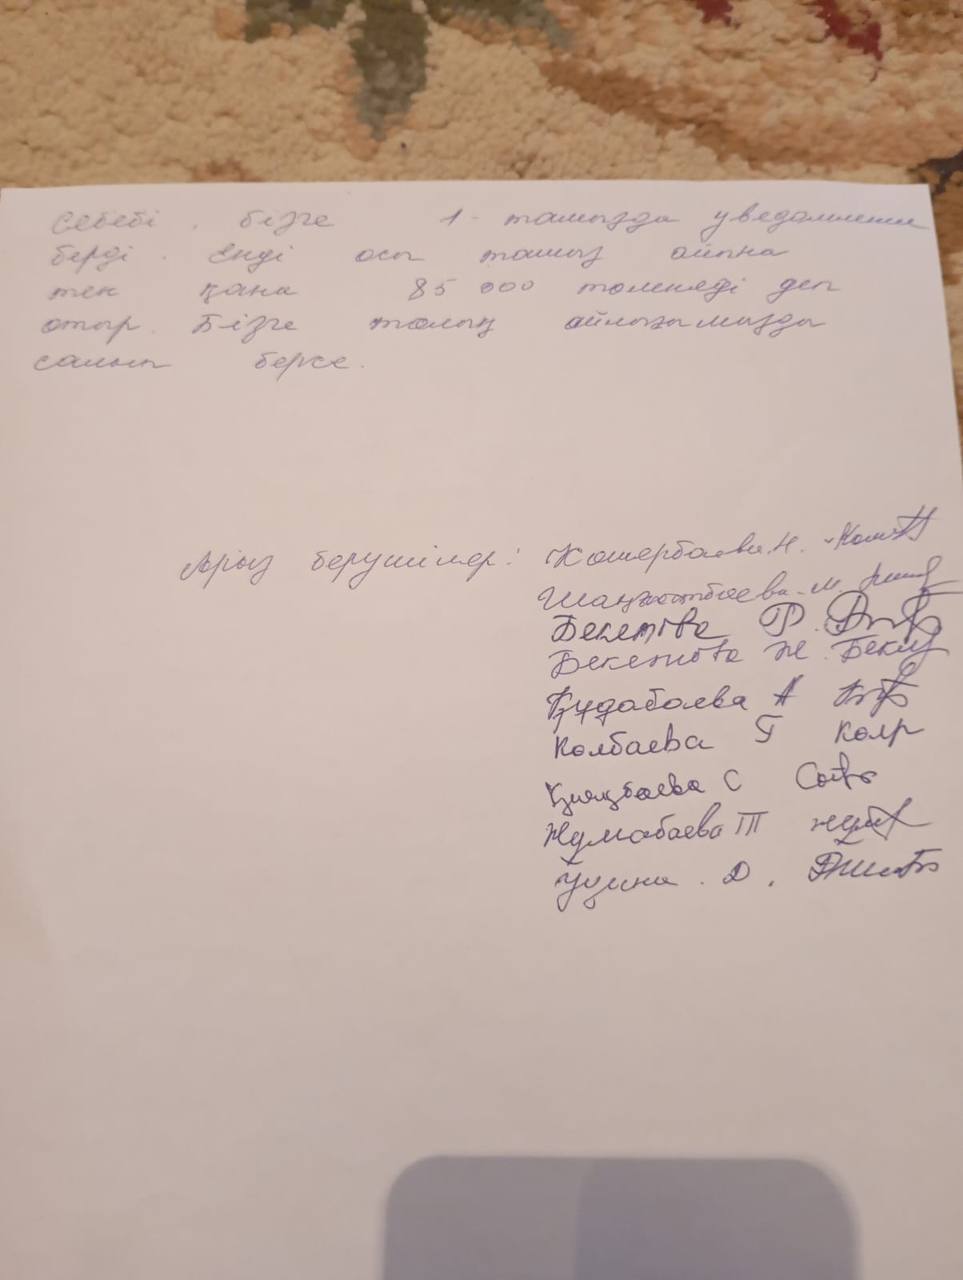 Себебі, бізге 1-тамызда уведомление
берді. Енді осы тамыз айына
тек қана 85 000 төленеді деп
отыр. Бізге толық айлығымызды
салып берсе.
Арыз берушілер: Кошербаева Н.
Шаңжотбаева М
Бекетова Ф.
Бекетова Ж.
Құдабаева А
Колбаева Г
Қиязбаева С
Жумабаева Ш
Д.